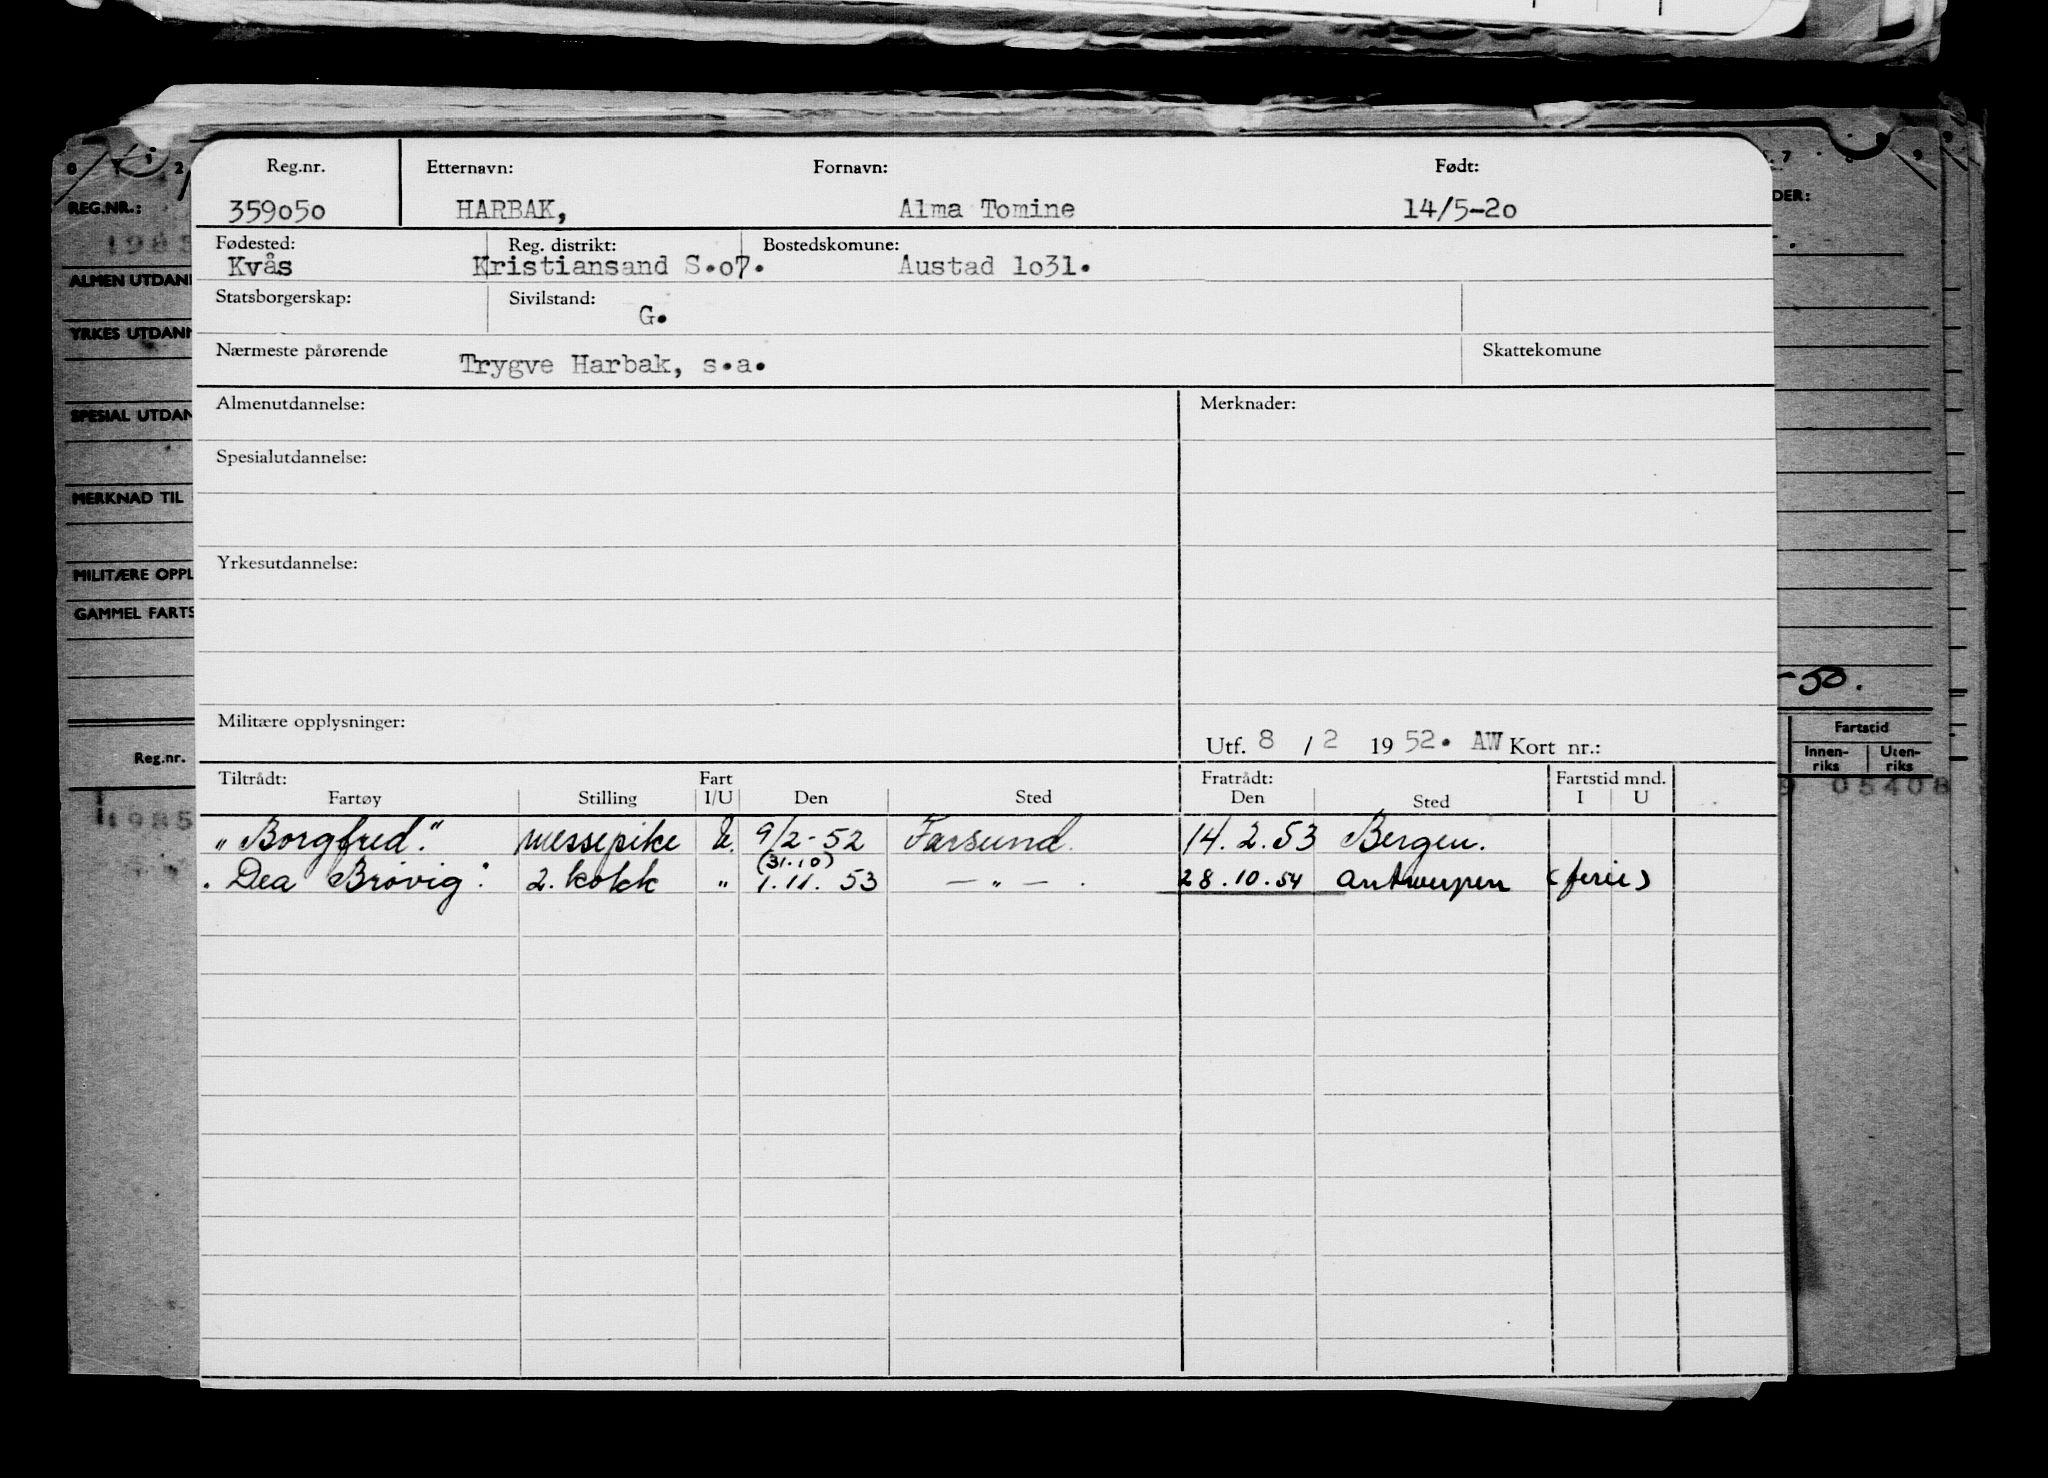 Reg.nr. Etternavn: Fornavn: Født:
359o5o HARBAK, Alma Tomine 14/5-2o
Fødested: Reg. distrikt: Bostedskomune:
Kvås Kristiansand S.o7. Austad 1o31.
Statsborgerskap: Sivilstand:
G.
Nærmeste pårørende Trygve Harbak, s.a. Skattekomune
Almenutdannelse: Merknader:
Spesialutdannelse:
Yrkesutdannelse:
Militære opplysninger:
Utf. 8 / 2 19 52. AW Kort nr.:
Tiltrådt: Fart Fratrådt: Fartstid mnd.
Fartøy Stilling I/U Den Sted Den Sted I U
„Borgfred." messepike U. 9/2-52 Farsund. 14.2.53 Bergen.
(31.10)
"Dea Brøvig". 2. kokk " 1.11.53 — " — . 28.10.54 Antwerpen (ferie)
REG.NR.:
ALMEN UTDAN
YRKES UTDAN
SPESIAL UTDAN
MERKNAD TIL
MILITÆRE OPPL
GAMMEL FARTS
Reg.nr.
1985
DER:
-50.
Fartstid
Innen-riks Uten-riks
05408